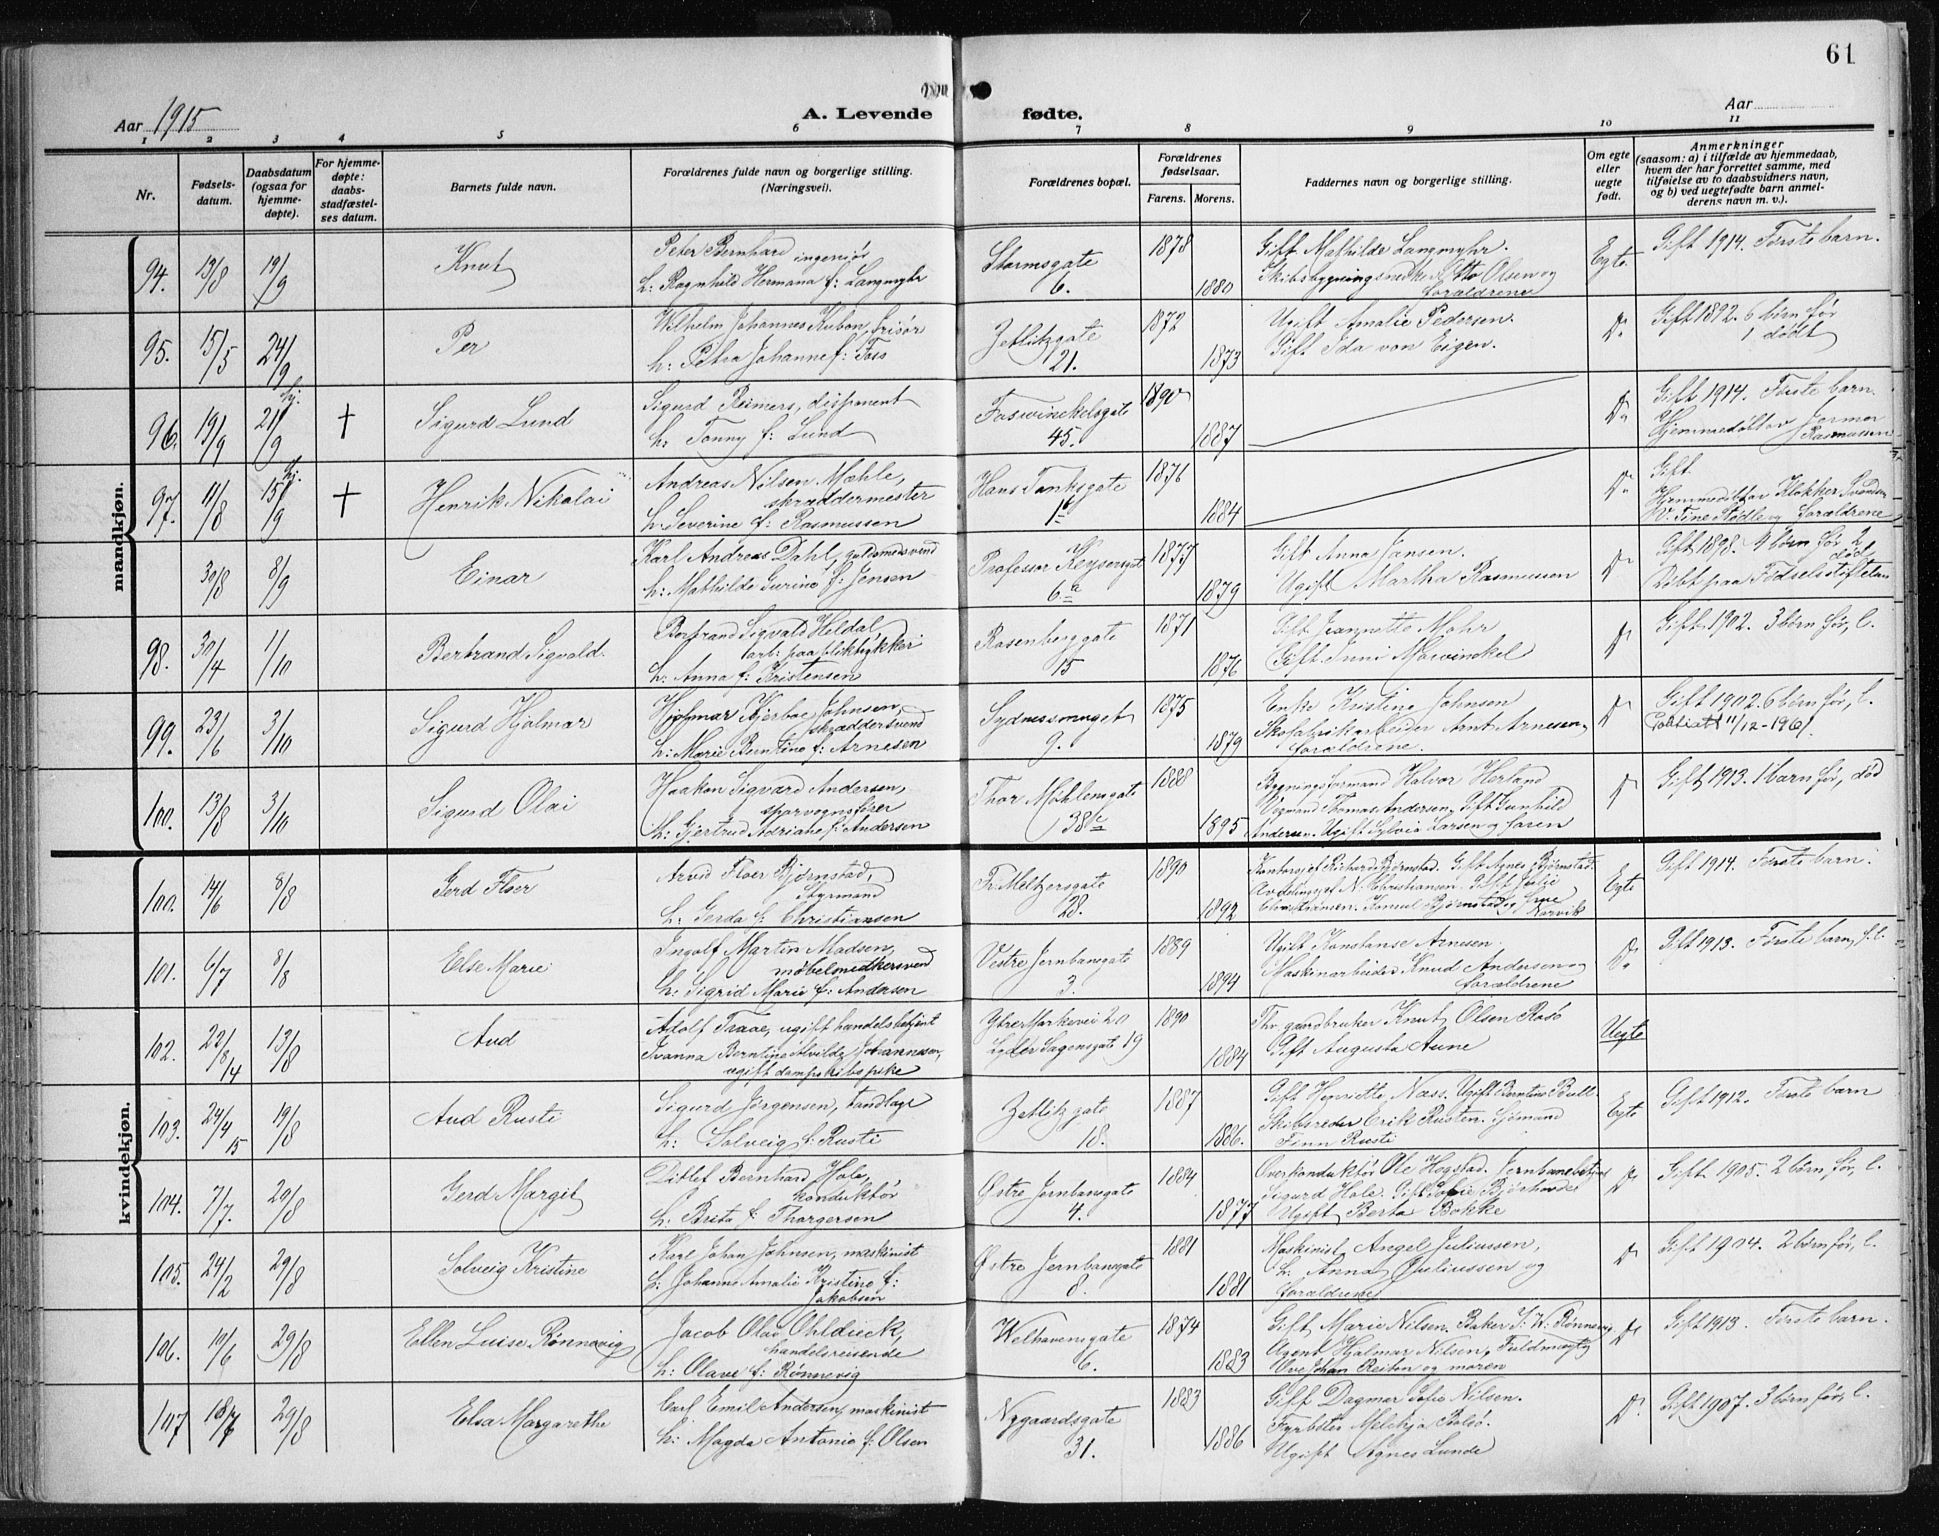 61
Aar 1915
A. Levende fødte.
Aar
1 2 3 4 5 6 7 8 9 10 11
Nr.
Fødsels-
datum.
Daabsdatum
(ogsaa for
hjemme-
døpte).
For hjemme-
døpte:
daabs-
stadfæstel-
ses datum.
Barnets fulde navn.
Forældrenes fulde navn og borgerlige stilling.
(Næringsvei).
Forældrenes bopæl.
Forældrenes
fødselsaar.
Farens. Morens.
Faddernes navn og borgerlige stilling.
Om egte
eller
uegte
født.
Anmerkninger
(saasom: a) i tilfælde av hjemmedaab,
hvem der har forrettet samme, med
tilføielse av to daabsvidners navn,
og b) ved uegtefødte barn anmel-
derens navn m. v.).
mandkjøn.
94. 13/8 19/9 Knut
Peter Bernhard ingeniør
h: Ragnhild Hermana f: Langmyhr
Stormsgate
6.
1878 1880
Gift Mathilde Langmyhr.
Otto Olsen og
forældrene
Egte
Gift 1914. Første barn.
95. 15/5 24/9 Per
Wilhelm Johannes Kubon, frisør
h: Petra Johanne f: Foss
Zetlitzgate
21.
1872 1873
Ugift Amalie Pedersen.
Gift Ida von Eigen.
Do
Gift 1892. 6 børn før
1 dødt
96. 19/9 21/9 hj. + Sigurd Lund
Sigurd Reimers, disponent
h: Tonny f: Lund
Foswinckelsgate
45.
1890 1887
Do
Gift 1914. Første barn.
Hjemmedøbt av Jormor
Rasmussen
97. 11/8 15/9 hj. + Henrik Nikolai
Andreas Nilsen Mæhle,
skræddermester
h: Severine f: Rasmussen
Hans Tanksgate
1876 1884
Do
Gift.
Hjemmedøbt av Klokker Svendsen
V. Tine Stødle og forældrene
30/8 8/9 Einar
Karl Andreas Dahl, guldsmedsvend
h: Mathilde Gurine f: Jensen
Professor Keysersgt
6a
1877 1879
Gift Anna Jansen.
Ugift Martha Rasmussen
Do
Gift 1898. 9 børn før 2
død
Døbt paa Fødselsstiftelsen
98. 30/4 1/10 Bertrand Sigvald.
Bertrand Sigvald Heldal
arb: paa bliktrykkeri
h: Anna f: Kristensen
Rosenberggate
15
1871 1876
Gift Jeannette Mohr
Gift Inni Mowinckel
Do
Gift 1902. 3 børn før, l.
99. 23/6 3/10 Sigurd Hjalmar
Hjalmar Kjerboe Johnsen,
skræddersvend
h: Marie Berntine f: Arnesen
Sydnessmuget
9.
1875 1879
Enke Kristine Johnsen
Skofabrikarbeider Arnt Arnesen,
forældrene.
Do
Gift 1902. 6 børn før, l.
11/12-1961.
100. 13/8 3/10 Sigurd Olai
Haakon Sigvard Andersen,
sporvognsfører
h: Gjertrud Adriane f: Andersen
Thor Møhlensgate
38c
1888 1895
Bygningsformand Halvor Herland
Vegmand Thomas Andersen. Gift Gunhild
Andersen. Ugift Sylvia Larsen og faren
Do
Gift 1913. 1 barn før, død
kvindekjøn.
100. 14/6 8/8 Gerd Floer
Arvid Floer Bjørnstad,
Styrmand
h: Gerda f: Christiansen
Fr. Meltzersgate
28.
1890 1892
Kontorsjef Richard Bjørnstad. Gift Agnes Bjørnstad.
Avdelingssjef N. Christiansen. Gift Julie
Christiansen. Konsul Bjørnstad
Narvik
Egte
Gift 1914. Første barn.
101. 6/7 8/8 Else Marie
Ingolf Martin Madsen,
møbelsnedkersvend
h: Sigrid Marie f: Andersen
Vestre Jernbanegate
3.
1889 1894
Ugift Konstanse Arnesen.
Maskinarbeider Knud Andersen og
forældrene
Do
Gift 1913. Første barn, f. l.
102. 22/8 14 13/8 Aud
Adolf Traae, ugift handelsbetjent
Ivanna Berntine Alvilde Johannesen,
ugift dampskibspike
Ytre Markevei 20
Lyder Sagensgate 19
1890 1884
Fhv. gaardbruker Knut Olsen Rosø
Gift Augusta Aune
Uegte
103. 24/4 15 19/8 Aud Rusti
Sigurd Jørgensen, tandlæge
h: Solveig f: Rusti
Zetlitzgate
18.
1887 1886.
Gift Henriette Næss. Ugift Berntine Bull.
Skibsreder Erik Rusten. Sjømand
Finn Rusti
Egte
Gift 1912. Første barn
104. 7/7. 29/8 Gerd Margit
Ditlef Bernhard Hole,
konduktør
h: Brita f: Thorgersen
Østre Jernbanegate
4.
1884 1877
Overkonduktør Ole Hogstad. Jernbanebetjent
Sigurd Hole. Gift Sofie Bjørhovde
Ugift Berta Bokke
Do
Gift 1905. 2 børn før, l.
105. 24/2 29/8 Solveig Kristine
Karl Johan Johnsen, maskinist
h: Johanne Amalie Kristine f:
Jakobsen
Østre Jernbanegate
8.
1881 1881
Maskinist Angel Juliussen,
h: Anna Juliussen og
forældrene
Do
Gift 1904. 2 børn før, l.
106. 10/6 29/8 Ellen Luise Rønnevig
Jacob Olav Ohldieck,
handelsreisende
h: Olave f: Rønnevig
Welhavensgate
6.
1874 1883
Gift Marie Nilsen. Baker J. W. Rønnevig
Agent Hjalmar Nilsen, Fuldmægtig
Ove Johan Reiton og moren
Do
Gift 1913. Første barn.
107 18/6 29/8 Elsa Margarethe
Carl Emil Andersen, maskinist
h: Magda Antonie f: Olsen
Nygaardsgate
31.
1883 1886
Gift Dagmar Sofie Nilsen.
Fyrbøter Melchja Bolsø.
Ugift Agnes Lunde
Do
Gift 1907. 3 børn før, l.